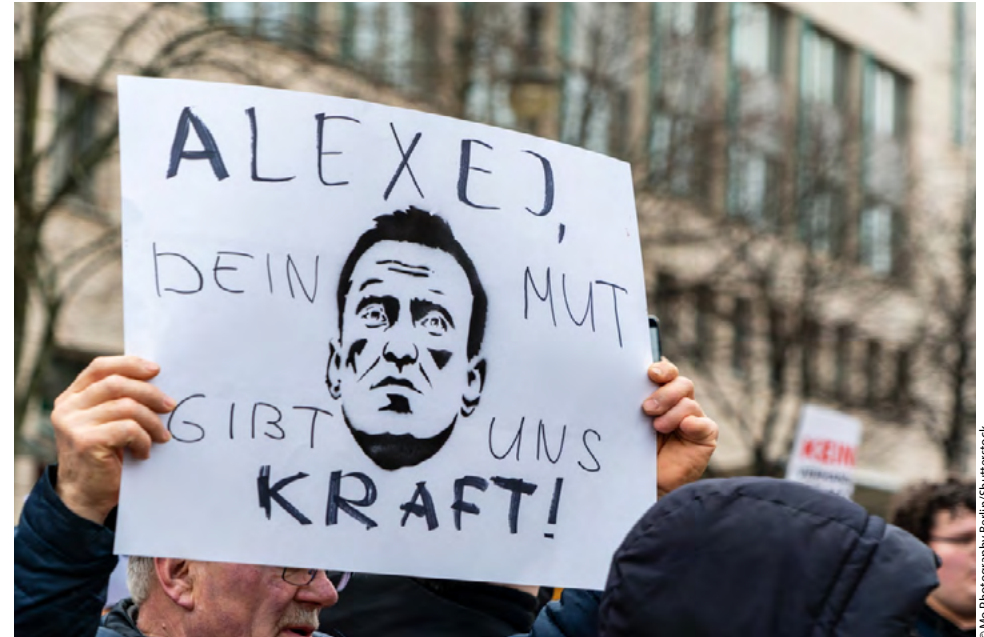 ALEXEJ,
DEIN MUT
GIBT UNS
KRAFT!
KEIN
©Mo Photography Berlin/Shutterstock